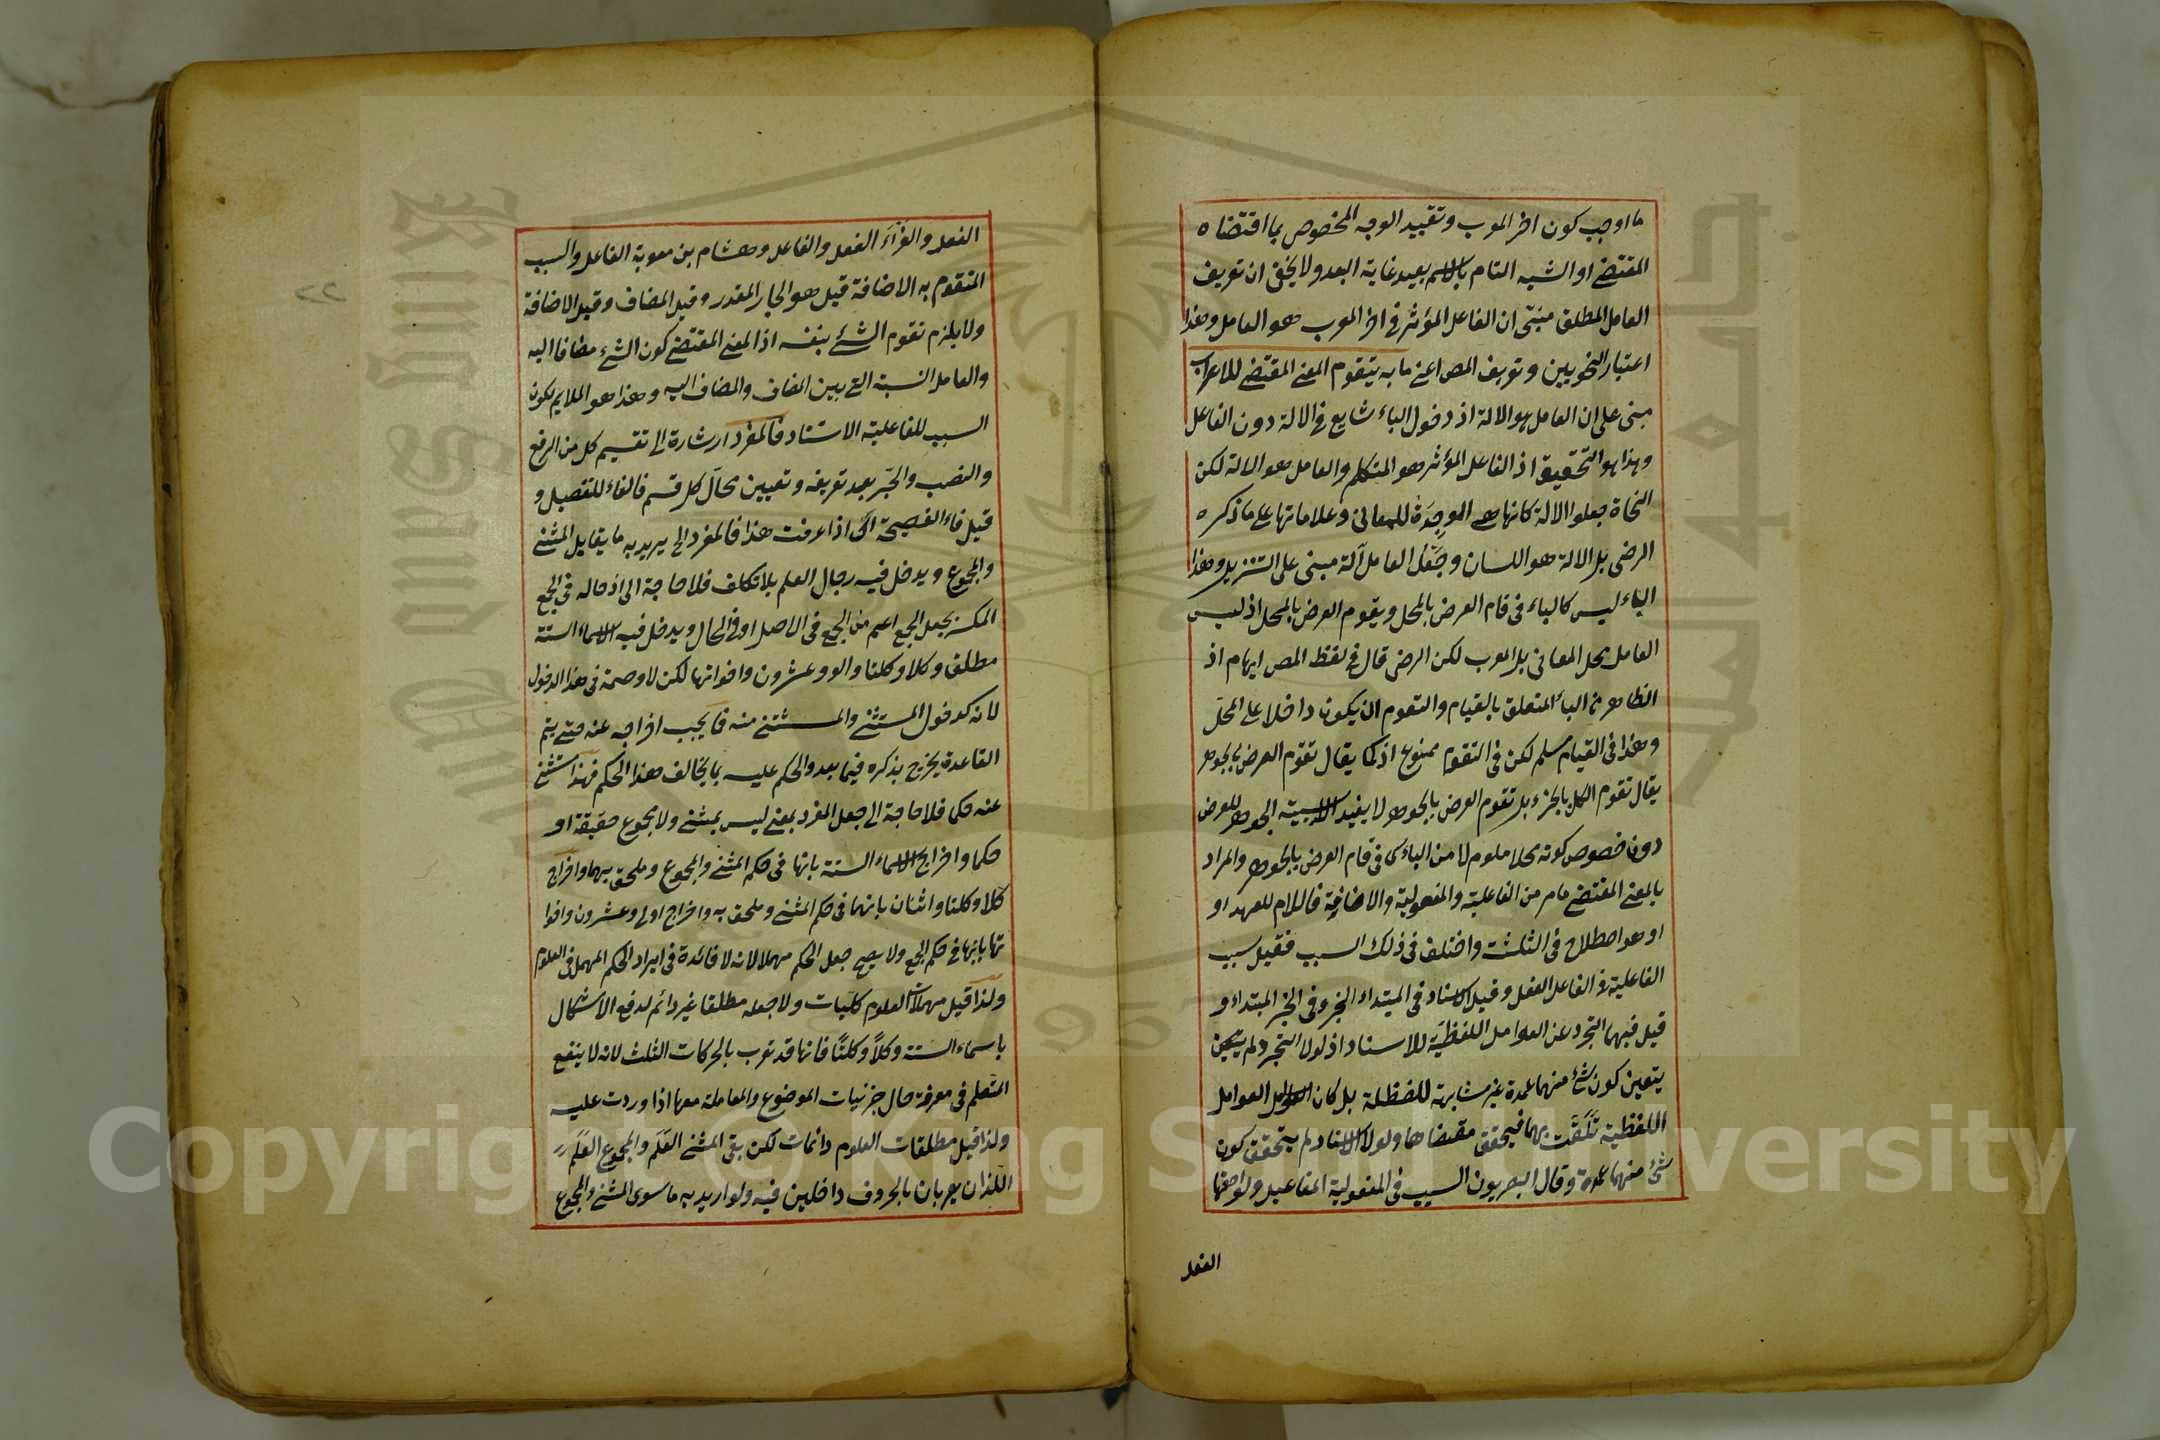 ما اوجب كون اخر المعرب وتقييد الوجه المخصوص بما اقتضاه
المقتضي او الشبه التام بالاسم بعيد غاية البعد ولا يخفى ان تعريف
العامل المطلق مبني ان الفاعل المؤثر في اخر المعرب هو العامل وهذا
اعتبار النحويين وتعريف المص اعني ما به يتقوم المعنى المقتضي للاعراب
مبني على ان العامل هو الالة اذ دخول الباء شايع في الالة دون الفاعل
وهذا هو التحقيق اذ الفاعل المؤثر هو المتكلم والعامل هو الالة لكن
النحاة جعلوا الالة كانها هي الموجِدَة للمعاني وعلاماتها على ما ذكره
الرضي بل الالة هو اللسان وجَعْلُ العامل آلة مبني على التنزيل وهذا
الباء ليس كالباء في قام العرض بالمحل ويقوم العرض بالمحل اذ ليس
العامل محل المعاني بل المعرب لكن الرضي قال في لفظ المص ايهام اذ
الظاهر من الباء المتعلق بالقيام والتقوم ان يكون داخلا على المحل
وهذا في القيام مسلم لكن في التقوم ممنوع اذ كما يقال تقوم العرض بالجوهر
يقال تقوم الكل بالجزء بل تقوم العرض بالجوهر لا يفيد الا سببية الجوهر للعرض
دون خصوص كونه محلا معلوم لا من الباء كما في قام العرض بالجوهر والمراد
بالمعنى المقتضي ما مر من الفاعلية والمفعولية والاضافة فاللام للعهد او
او هو اصطلاح في الثلثة واختلف في ذلك السبب فقيل سبب
الفاعلية في الفاعل الفعل وقيل الاسناد في المبتداء الخبر وفي الخبر المبتداء و
قيل فيهما التجرد عن العوامل اللفظية للاسناد اذ لولا التجرد لم يتعين
يتعين كون شئ منهما عمدة غير مشابهة للفضلة بل كان العوامل العوامل
اللفظية تَلَقَّت بهما فيحقق مقتضاها ولولا الاسناد لم يتحقق كون
شئ منهما عمدة وقال البصريون السبب في المفعولية المفاعيل ولواحقها
الفعل
الفعل والفراء الفعل والفاعل وهشام بن معوية الفاعل والسبب
المتقوم به الاضافة قيل هو الجار المقدر وقيل المضاف وقيل الاضافة
ولا يلزم تقوم الشئ بنفسه اذ المعنى المقتضي كون الشئ مضافا اليه
والعامل النسبة التي بين المضاف والمضاف اليه وهذا هو الملايم لكون
السبب للفاعلية الاسناد فالمفرد ارشارة الى تقسيم كل من الرفع
والنصب والجر بعد تعريفه وتعيين محال كل قسم فالفاء للتفصيل و
قيل فاء الفصيحة اي اذا عرفت هذا فالمفرد الخ يريد به ما يقابل المثنى
والمجموع ويدخل فيه رجال العلم بلا تكلف فلا حاجة الى ادخاله في الجمع
المكسر بجعل الجمع اعم من الجمع في الاصل او في الحال ويدخل فيه الاسماء الستة
مطلق وكلا وكلتا والو وعشرون واخواتها لكن لا وصمة في هذا الدخول
لانه كدخول المستثنى والمستثنى منه فا يجب اخراجه عنه حتى يتم
القاعدة يخرج بذكره فيما بعد والحكم عليه بما يخالف هذا الحكم فهذا استثنى
عنه حكما فلا حاجة الى جعل المفرد بمعنى ليس بمثنى ولا مجموع حقيقة او
حكما واخراج الاسماء الستة بانها في حكم المثنى والمجموع وملحق بهما واخراج
كلا وكلتا واثنان بانهما في حكم المثنى وملحق به واخراج اولي وعشرون واخوا
تها بانها في حكم الجمع ولا يصح جعل الحكم مهملا لانه لا فائدة في ايراد الحكم المهمل في العلوم
ولذا قيل مهملات العلوم كليات ولا جعله مطلقا غير دائم لدفع الاشكال
باسماء الستة وكلاً وكلتًا فانها قد تعرب بالحركات الثلث لانه لا ينفع
المتعلم في معرفة حال جزئيات الموضوع والمعاملة معها اذا وردت عليه
ولذا قيل مطلقات العلوم دائمات لكن بقى المثنى العَلَم والمجموع العَلَم
اللذان يعربان بالحروف داخلين فيه ولو اريد به ما سوى المثنى والمجموع
٢٢
King Saud University
1957
Copyright © King Saud University